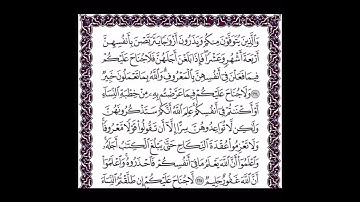 وَالَّذِينَ يُتَوَفَّوْنَ مِنكُمْ وَيَذَرُونَ أَزْوَاجًا يَتَرَبَّصْنَ بِأَنفُسِهِنَّ
أَرْبَعَةَ أَشْهُرٍ وَعَشْرًا فَإِذَا بَلَغْنَ أَجَلَهُنَّ فَلَا جُنَاحَ عَلَيْكُمْ
فِيمَا فَعَلْنَ فِي أَنفُسِهِنَّ بِالْمَعْرُوفِ وَاللَّهُ بِمَا تَعْمَلُونَ خَبِيرٌ
﴿٢٣٤﴾ وَلَا جُنَاحَ عَلَيْكُمْ فِيمَا عَرَّضْتُم بِهِ مِنْ خِطْبَةِ النِّسَاءِ
أَوْ أَكْنَنتُمْ فِي أَنفُسِكُمْ عَلِمَ اللَّهُ أَنَّكُمْ سَتَذْكُرُونَهُنَّ
وَلَٰكِن لَّا تُوَاعِدُوهُنَّ سِرًّا إِلَّا أَن تَقُولُوا قَوْلًا مَّعْرُوفًا
وَلَا تَعْزِمُوا عُقْدَةَ النِّكَاحِ حَتَّىٰ يَبْلُغَ الْكِتَابُ أَجَلَهُ
وَاعْلَمُوا أَنَّ اللَّهَ يَعْلَمُ مَا فِي أَنفُسِكُمْ فَاحْذَرُوهُ وَاعْلَمُوا
أَنَّ اللَّهَ غَفُورٌ حَلِيمٌ ﴿٢٣٥﴾ لَّا جُنَاحَ عَلَيْكُمْ إِن طَلَّقْتُمُ النِّسَاءَ